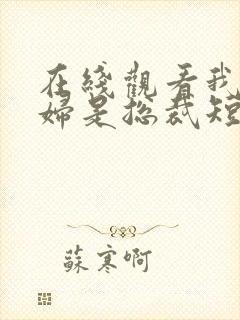 在綫觀看我
婦是总裁短
蘇寒啊